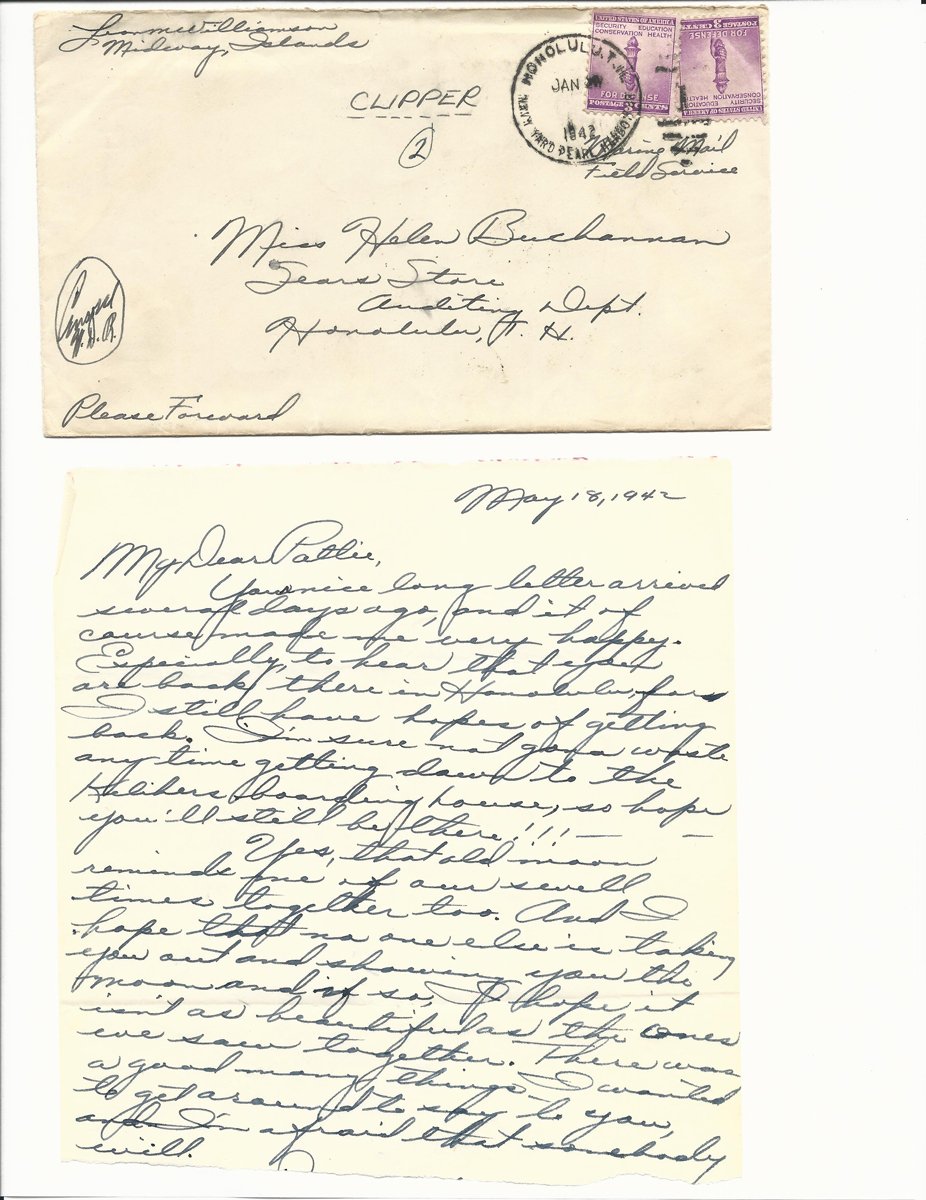 Leon McWilliamson
Midway, Islands
CLIPPER
2
HONOLULU, T.H.
JAN
1942
NAVY YARD PEARL HARBOR
UNITED STATES OF AMERICA
SECURITY EDUCATION
CONSERVATION HEALTH
FOR DEFENSE
POSTAGE 3 CENTS
UNITED STATES OF AMERICA
SECURITY EDUCATION
CONSERVATION HEALTH
FOR DEFENSE
POSTAGE 3 CENTS
Marine Mail
Field Service
Miss Helen Buchannan
Sears Store
Auditing Dept.
Honolulu, T. H.
Please Forward
May 18, 1942
My Dear Pattie,
Your nice long letter arrived
several days ago, and it of
course made me very happy.
Especially, to hear that your
are back there in Honolulu, for
I still have hopes of getting
back. I'm sure not gona waste
any time getting down to the
boarding house, so hope
you'll still be there!!! — —
Yes, that old moon
reminds me of our swell
times together too. And I
hope that no one else is taking
you out and showing you the
moon and if so, I hope it
isn't as beautiful as the ones
we saw together. There was
a good many things I wanted
to get around to say to you,
and I'm afraid that somebody
will.